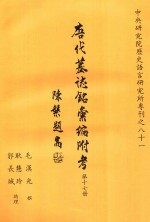 中央研究院歷史語言研究所專刊之八十一
唐代墓誌銘彙編附考
第十七冊
陳槃題耑
毛漢光 撰
耿慧玲
郭長城 助理